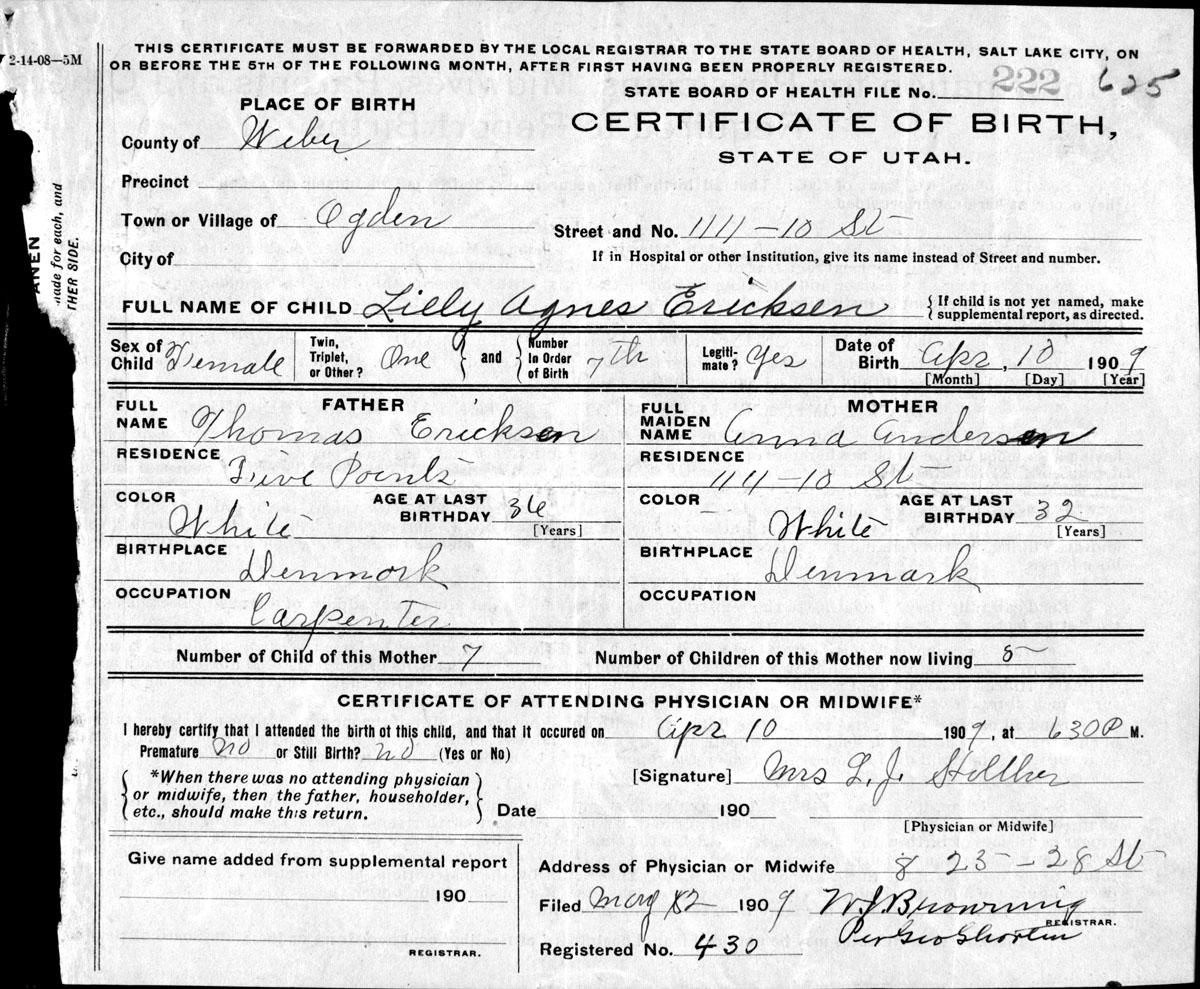 2-14-08—5M
THIS CERTIFICATE MUST BE FORWARDED BY THE LOCAL REGISTRAR TO THE STATE BOARD OF HEALTH, SALT LAKE CITY, ON
OR BEFORE THE 5TH OF THE FOLLOWING MONTH, AFTER FIRST HAVING BEEN PROPERLY REGISTERED.
STATE BOARD OF HEALTH FILE No. 222 625
PLACE OF BIRTH
CERTIFICATE OF BIRTH,
STATE OF UTAH.
County of Weber
Precinct
Town or Village of Ogden
Street and No. 1111-10 St
City of
If in Hospital or other Institution, give its name instead of Street and number.
FULL NAME OF CHILD Lilly Agnes Ericksen
If child is not yet named, make
supplemental report, as directed.
Sex of Child Female Twin, Triplet, or Other? One and Number in Order of Birth 7th Legiti-mate? Yes Date of Birth Apr, 10 1909
[Month] [Day] [Year]
FATHER MOTHER
FULL NAME Thomas Ericksen FULL MAIDEN NAME Anna Andersen
RESIDENCE Five Points RESIDENCE 1111-10 St
COLOR White AGE AT LAST BIRTHDAY 36 [Years] COLOR White AGE AT LAST BIRTHDAY 32 [Years]
BIRTHPLACE Denmark BIRTHPLACE Denmark
OCCUPATION Carpenter OCCUPATION
Number of Child of this Mother 7 Number of Children of this Mother now living 5
CERTIFICATE OF ATTENDING PHYSICIAN OR MIDWIFE*
I hereby certify that I attended the birth of this child, and that it occured on Apr 10 1909, at 630 P M.
Premature no or Still Birth? no (Yes or No)
*When there was no attending physician
or midwife, then the father, householder,
etc., should make this return.
[Signature] Mrs L. J.
Date 190
[Physician or Midwife]
Give name added from supplemental report
190
REGISTRAR.
Address of Physician or Midwife 823-28 St
Filed May 12 1909 W J Browning
REGISTRAR.
Per Geo Shorten
Registered No. 430
ANEN
made for each, and
THER SIDE.